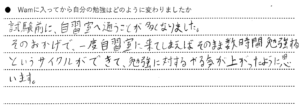 ● Wamに入ってから自分の勉強はどのように変わりましたか
試験前に、自習室へ通うことが多くなりました。
そのおかげで、一度自習室に来てしまえばそのまま数時間勉強する
というサイクルができて、勉強に対するやる気が上がったように思
います。